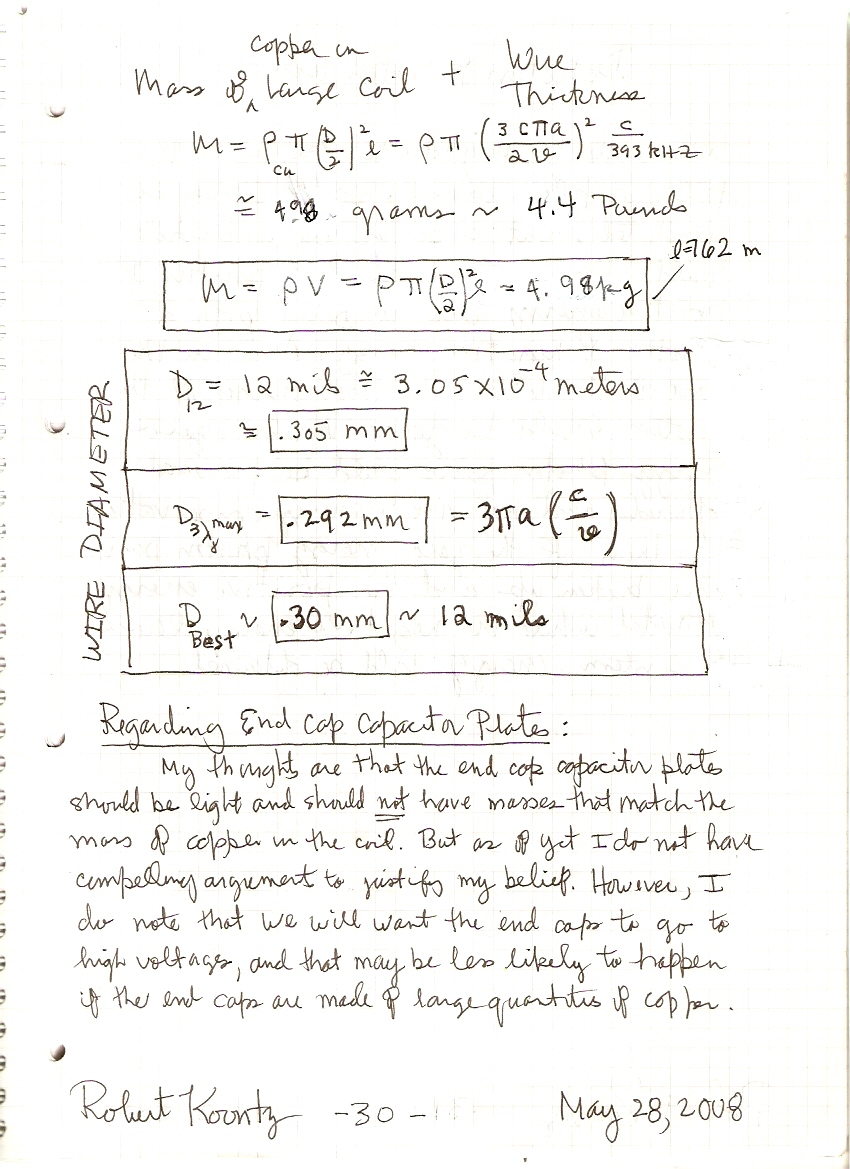 copper in
Mass of ^ Large Coil + Wire Thickness
m = ρ_cu π (D/2)² l = ρ π (3 c π a / 2 v)² c / 393 kHz
≅ 498 grams ~ 4.4 Pounds
l=762 m
m = ρ V = ρ π (D/2)² l ≈ 4.98 kg
WIRE DIAMETER
D_12 = 12 mils ≅ 3.05 × 10^-4 meters
≈ .305 mm
D_3λγ^max = .292 mm = 3πa (c/v)
D_Best ~ .30 mm ~ 12 mils
Regarding End Cap Capacitor Plates:
My thoughts are that the end cap capacitor plates
should be light and should not have masses that match the
mass of copper in the coil. But as of yet I do not have
compelling argument to justify my belief. However, I
do note that we will want the end caps to go to
high voltages, and that may be less likely to happen
if the end caps are made of large quantities of copper.
Robert Koontz -30- May 28, 2008